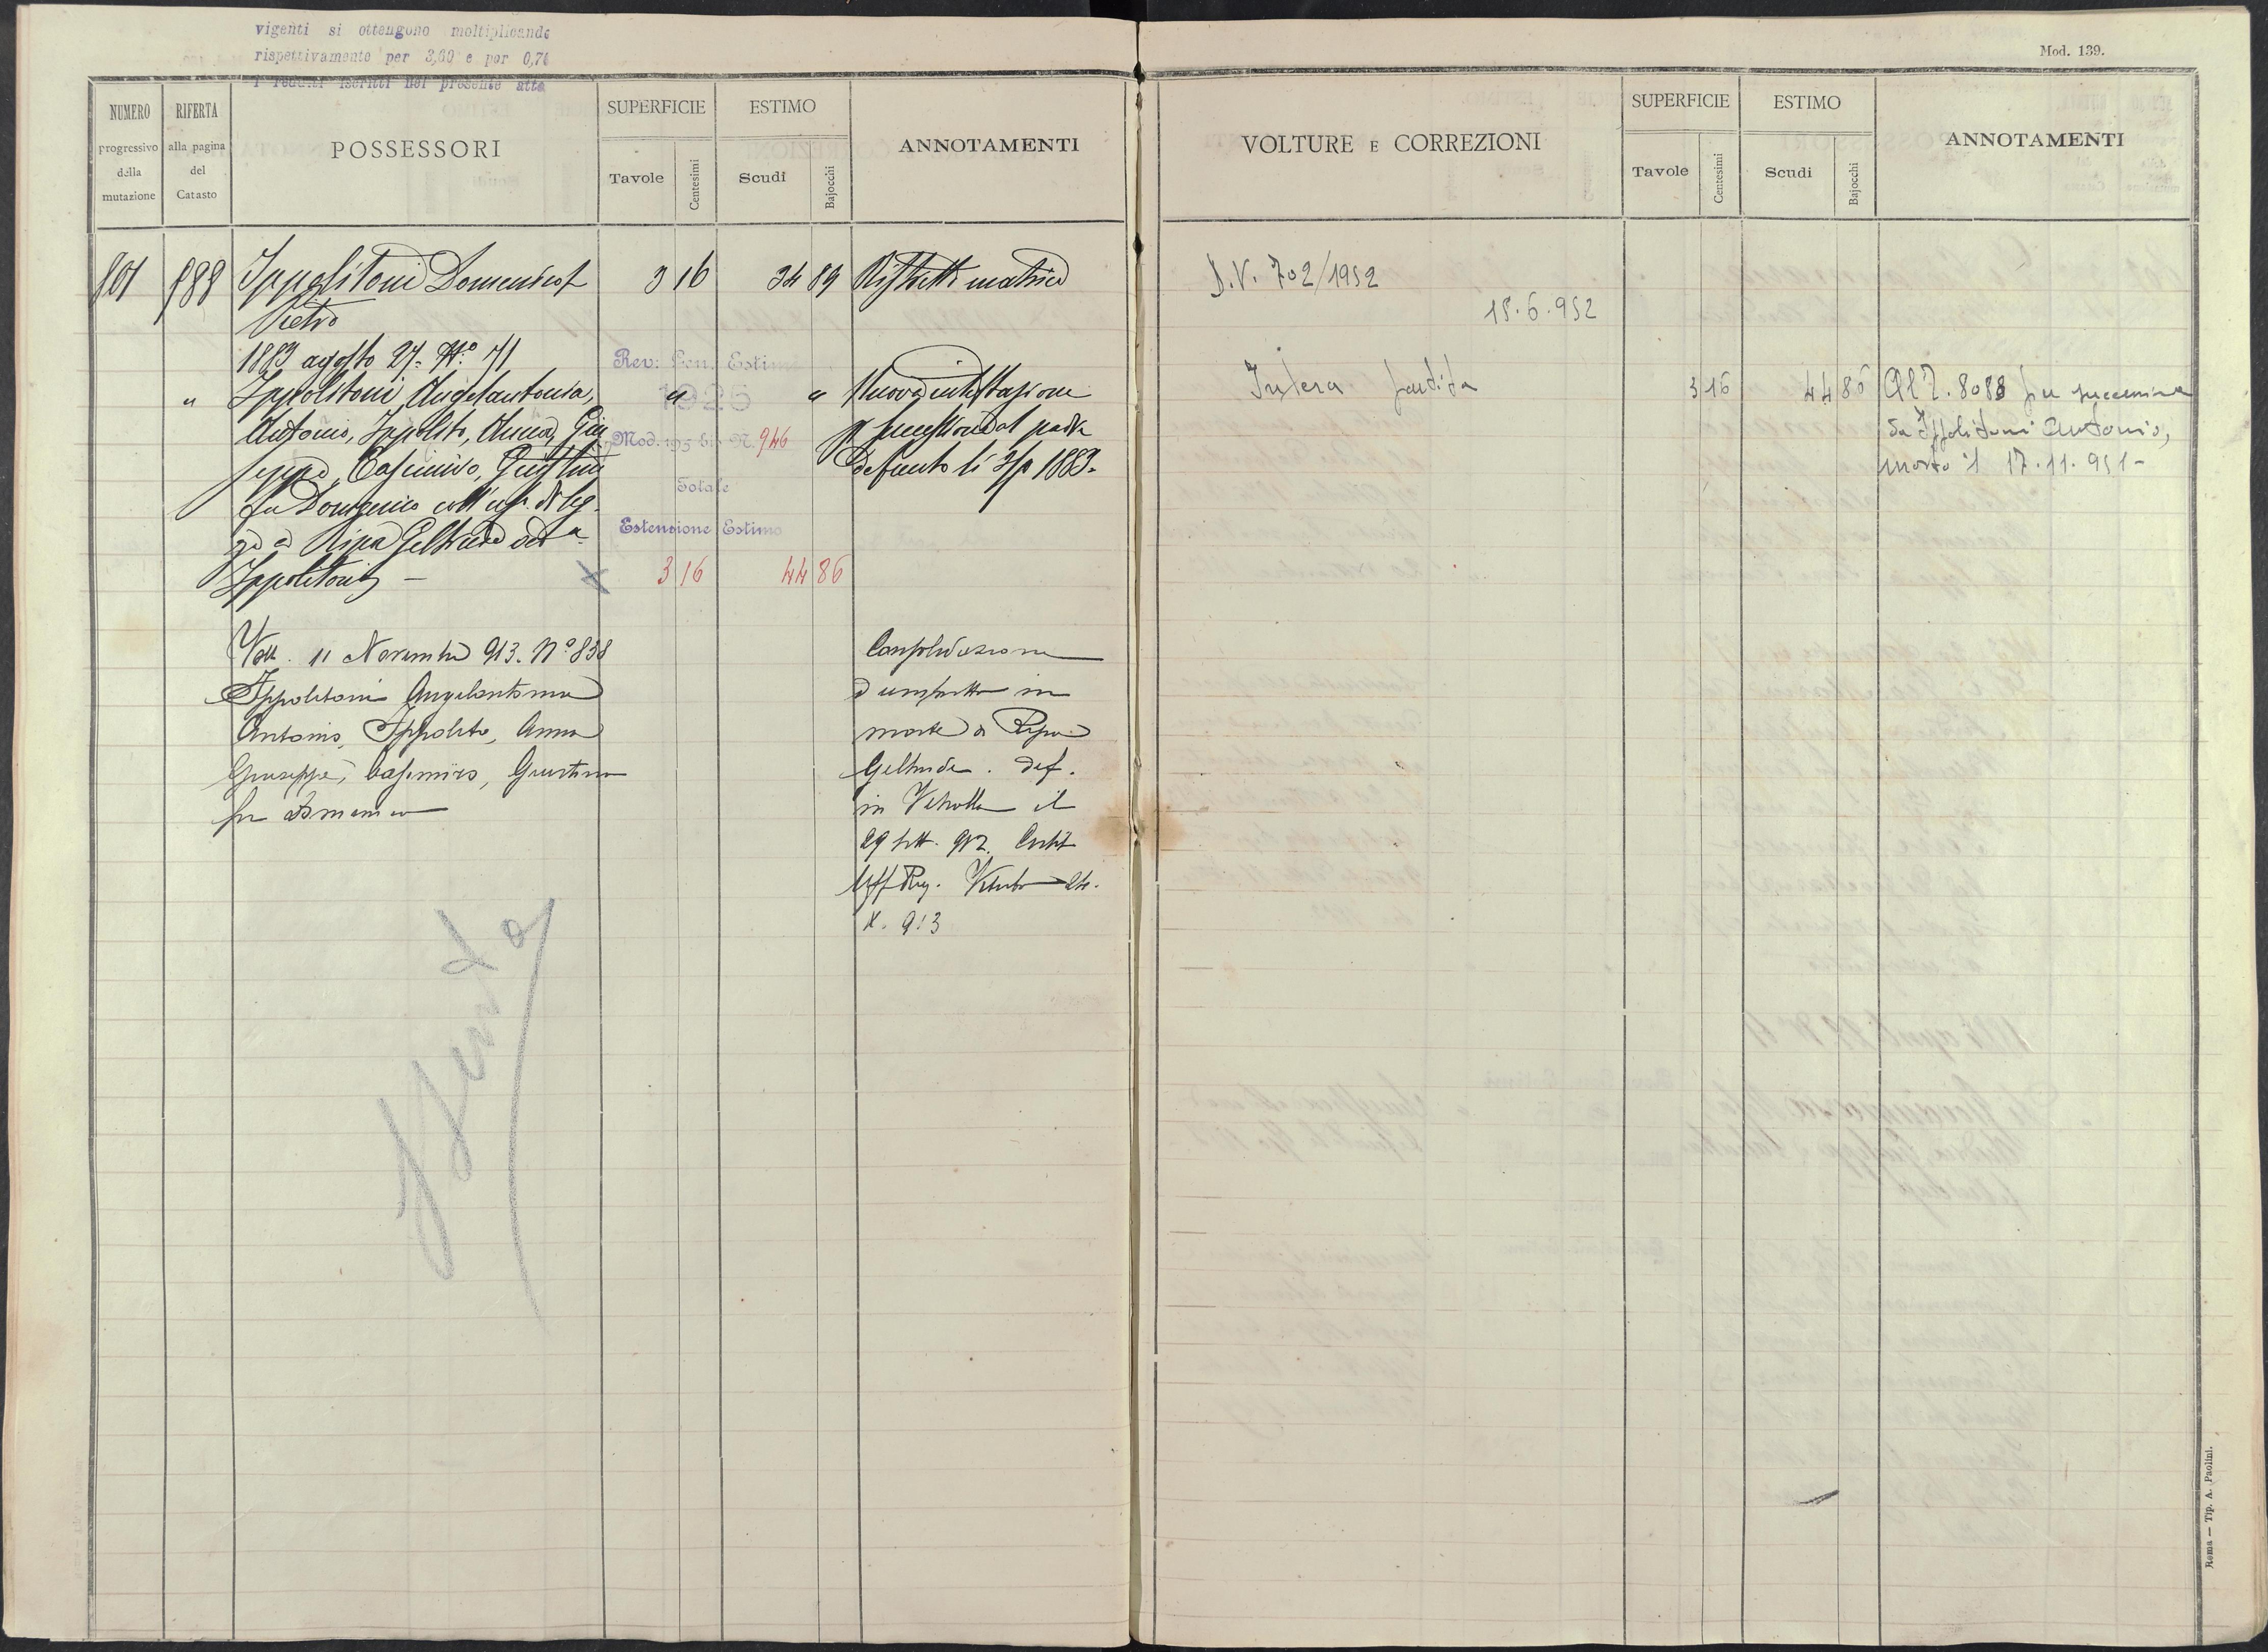 vigenti si ottengono moltiplicando
rispettivamente per 3,60 e per 0,74
i redditi iscritti nel presente atto
NUMERO
progressivo
della
mutazione
RIFERTA
alla pagina
del
Catasto
POSSESSORI
SUPERFICIE
Tavole
Centesimi
ESTIMO
Scudi
Bajocchi
ANNOTAMENTI
801 888 Ippolitoni Domenico f 3 16 34 89 Ristretto matrice
Pietro
1883 agosto 27. N.º 71
" Ippolitoni Angelantonia, " " Nuova intestazione
Antonio, Ippolito, Anna, Giu
seppe, Casimiro, Giustina
fu Domenico coll'usf. di leg
ge a Ripa Geltrude ved.a
Ippolitoni –
p successione dal padre
defunto li 1883.
Rev: Gen. Estimi
1925
Mod. 195 bis N. 946
Totale
Estensione Estimo
3 16 44 86
Volt. 11 Novembre 913. Nº 838
Ippolitoni Angelantonia
Antonio, Ippolito, Anna
Giuseppe, Casimiro, Giustina
fu Domenico
Consolidazione
d'usufrutto in
morte di Ripa
Geltrude. def.
in Vetralla il
29 sett. 912. Certif
Uff Reg. Viterbo 24.
X. 913
Spenta
Mod. 139.
VOLTURE E CORREZIONI
SUPERFICIE
Tavole
Centesimi
ESTIMO
Scudi
Bajocchi
ANNOTAMENTI
D.V. 702/1952
18.6.952
Intera partita 3 16 44 86 Al 2. 8088 per successione
da Ippolitoni Antonio,
morto il 17.11.951-
Roma — Tip. A. Paolini.